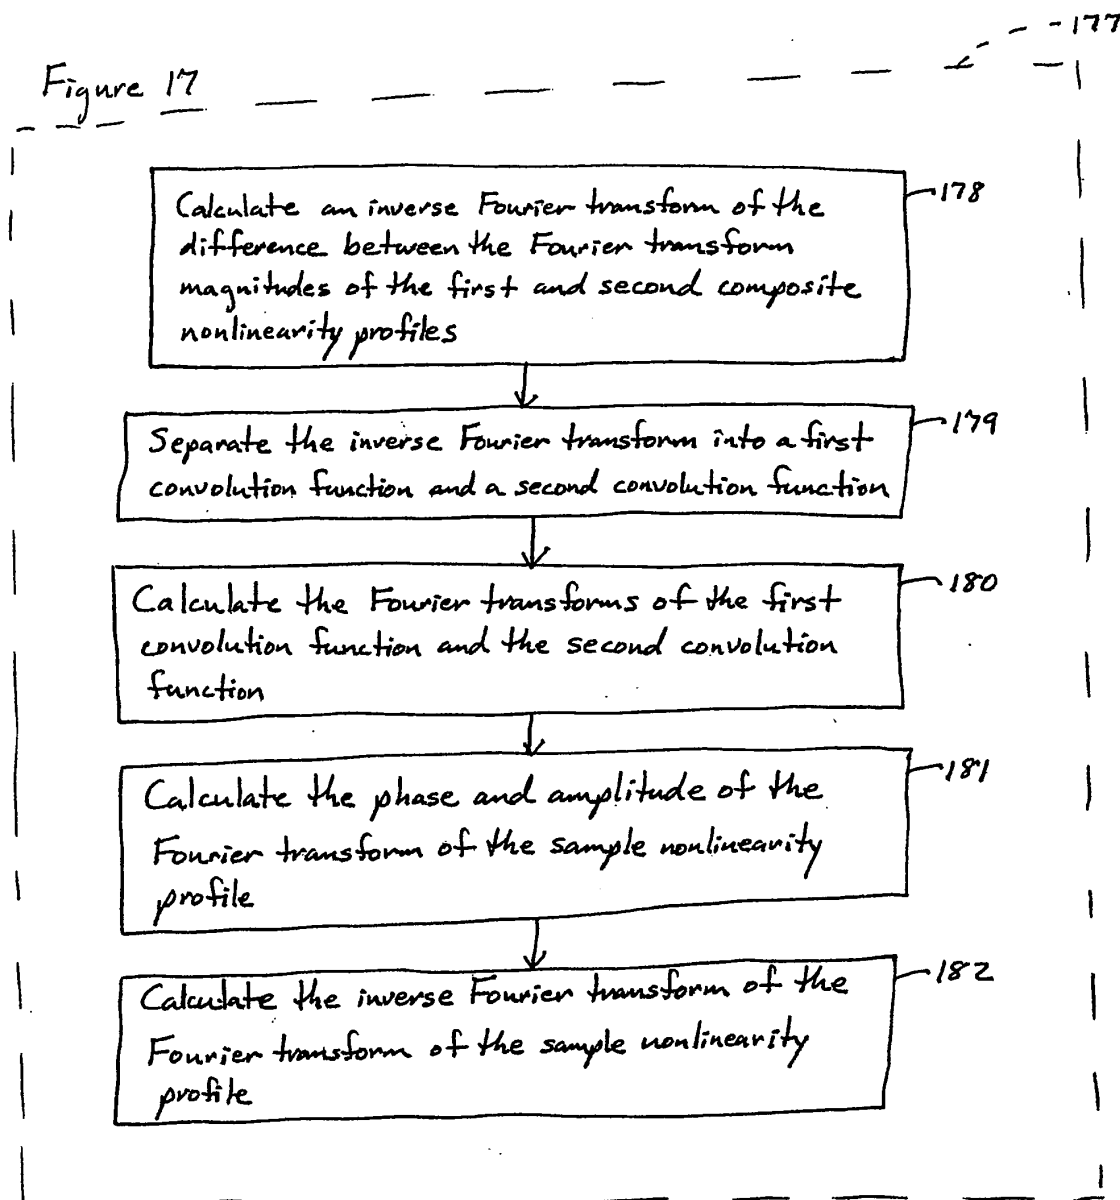 177
Figure 17
178
Calculate an inverse Fourier transform of the
difference between the Fourier transform
magnitudes of the first and second composite
nonlinearity profiles
179
Separate the inverse Fourier transform into a first
convolution function and a second convolution function
180
Calculate the Fourier transforms of the first
convolution function and the second convolution
function
181
Calculate the phase and amplitude of the
Fourier transform of the sample nonlinearity
profile
182
Calculate the inverse Fourier transform of the
Fourier transform of the sample nonlinearity
profile